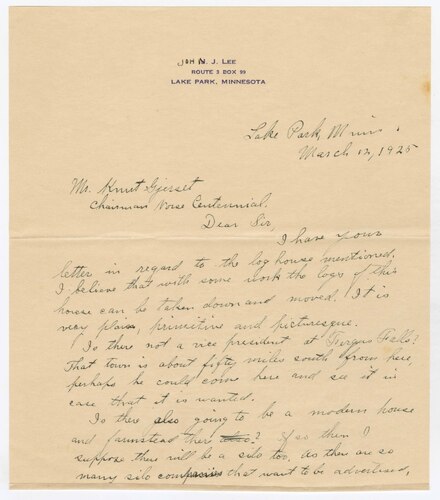 JOHN. J. LEE
ROUTE 3 BOX 99
LAKE PARK, MINNESOTA
Lake Park, Minn.
March 12, 1925
Mr. Knut Gjerset
Chairman Norse Centennial.
Dear Sir,
I have your
letter in regard to the log house mentioned.
I believe that with some work the logs of this
house can be taken down and moved. It is
very plain, primitive and picturesque.
Is there not a vice president at Fergus Falls?
That town is about fifty miles south from here,
perhaps he could come here and see it in
case that it is wanted.
Is there also going to be a modern house
and farmstead ther ? If so then I
suppose there will be a silo too, as there are so
many silo companies that want to be advertised,